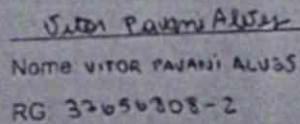 Vitor Pavani Alves
Nome VITOR PAVANI ALVES
RG 37656808-2